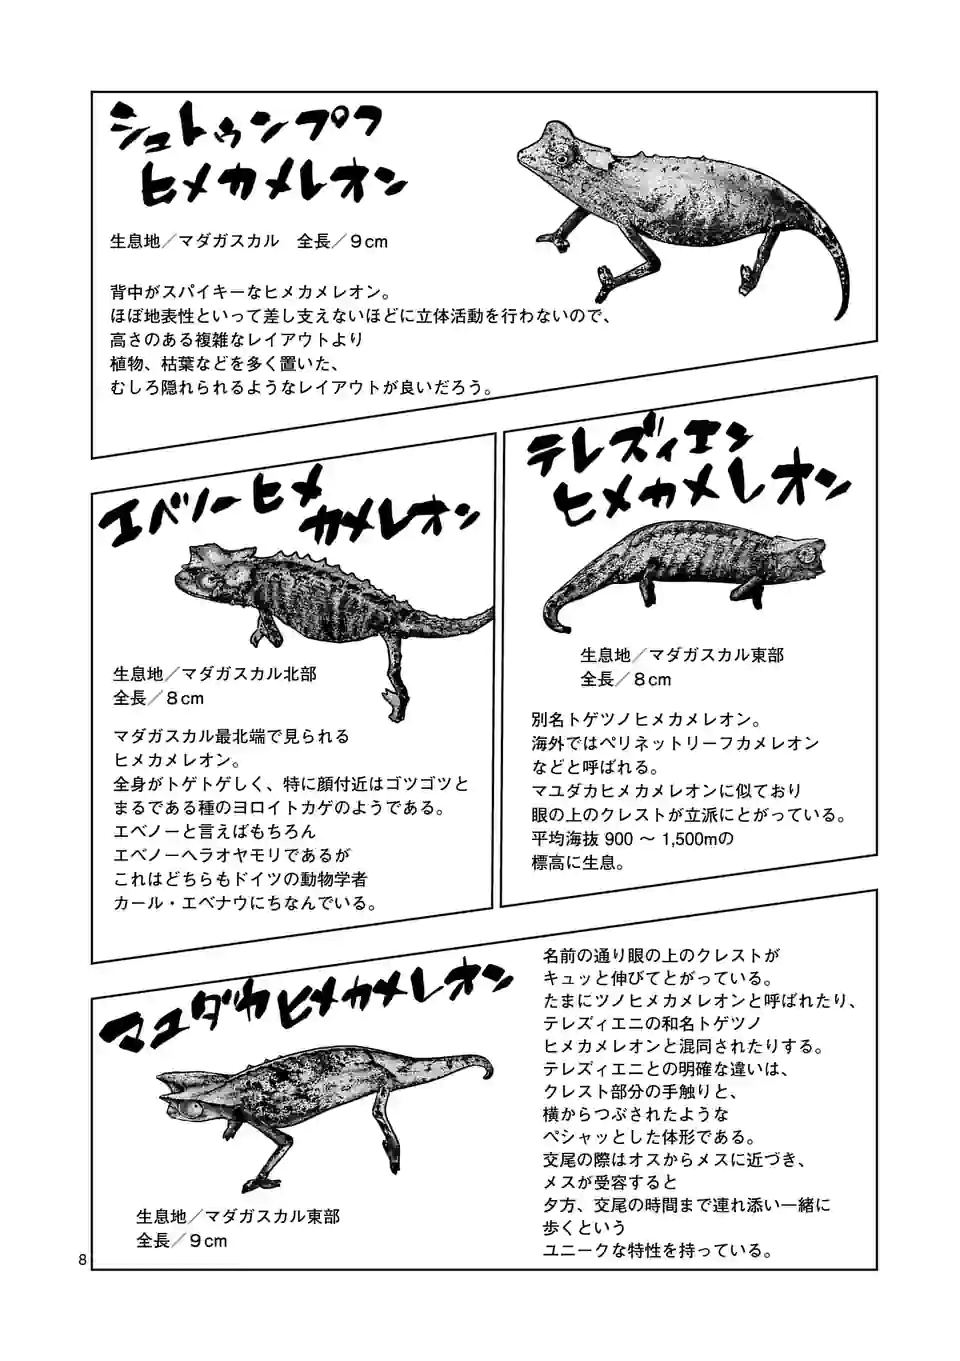 シュトゥンプフ
ヒメカメレオン
生息地／マダガスカル　全長／９cm
背中がスパイキーなヒメカメレオン。
ほぼ地表性といって差し支えないほどに立体活動を行わないので、
高さのある複雑なレイアウトより
植物、枯葉などを多く置いた、
むしろ隠れられるようなレイアウトが良いだろう。
エベノーヒメ
カメレオン
生息地／マダガスカル北部
全長／８cm
マダガスカル最北端で見られる
ヒメカメレオン。
全身がトゲトゲしく、特に顔付近はゴツゴツと
まるである種のヨロイトカゲのようである。
エベノーと言えばもちろん
エベノーヘラオヤモリであるが
これはどちらもドイツの動物学者
カール・エベナウにちなんでいる。
テレズィエン
ヒメカメレオン
生息地／マダガスカル東部
全長／８cm
別名トゲツノヒメカメレオン。
海外ではペリネットリーフカメレオン
などと呼ばれる。
マユダカヒメカメレオンに似ており
眼の上のクレストが立派にとがっている。
平均海抜 900 ～ 1,500mの
標高に生息。
マユダカヒメカメレオン
生息地／マダガスカル東部
全長／９cm
名前の通り眼の上のクレストが
キュッと伸びてとがっている。
たまにツノヒメカメレオンと呼ばれたり、
テレズィエニの和名トゲツノ
ヒメカメレオンと混同されたりする。
テレズィエニとの明確な違いは、
クレスト部分の手触りと、
横からつぶされたような
ペシャッとした体形である。
交尾の際はオスからメスに近づき、
メスが受容すると
夕方、交尾の時間まで連れ添い一緒に
歩くという
ユニークな特性を持っている。
8